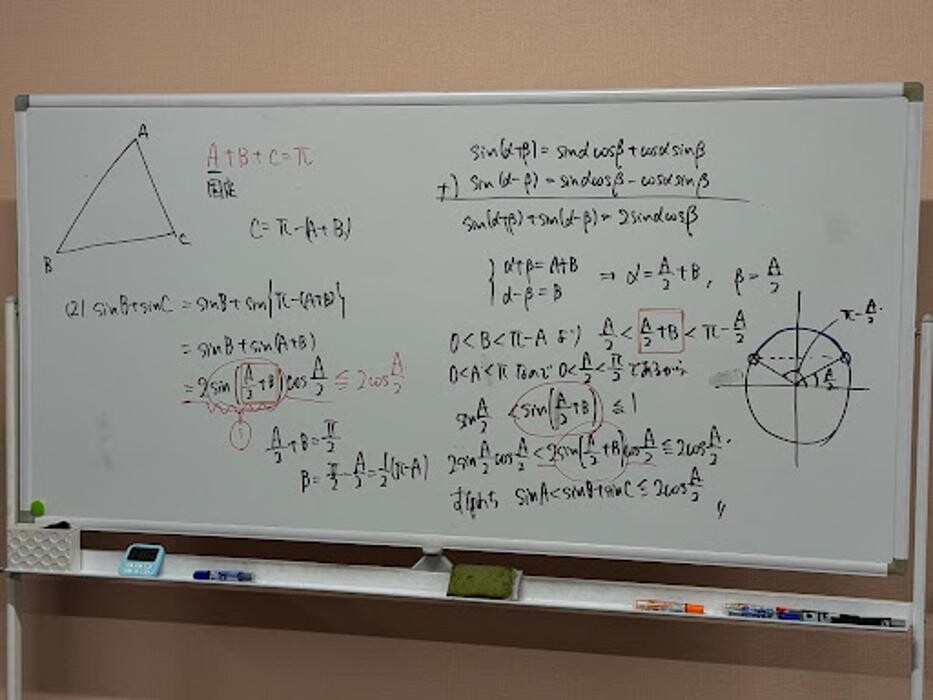 A
B
C
A+B+C=π
固定
C=π-(A+B)
(2) sinB+sinC = sinB+sin{π-(A+B)}
= sinB+sin(A+B)
= 2sin(A/2+B)cos A/2 ≦ 2cos A/2
1
A/2+B=π/2
B=π/2-A/2=1/2(π-A)
sin(α+β)=sinαcosβ+cosαsinβ
+) sin(α-β)=sinαcosβ-cosαsinβ
sin(α+β)+sin(α-β)=2sinαcosβ
{α+β=A+B
α-β=B
⇒ α=A/2+B, β=A/2
0<B<π-A より A/2<A/2+B<π-A/2
0<A<π なので 0<A/2<π/2 であるから
sin A/2 <sin(A/2+B) ≦ 1
2sin A/2 cos A/2 < 2sin(A/2+B)cos A/2 ≦ 2cos A/2.
すなわち sinA<sinB+sinC≦2cos A/2 〃
π-A/2.
A/2